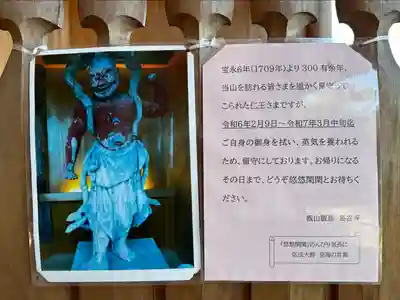 宝永6年(1709年)より300有余年、
当山を訪れる皆さまを温かく見守って
こられた仁王さまですが、
令和6年2月9日~令和7年3月中旬迄
ご自身の御身を拭い、英気を養われる
ため、留守にしております。お帰りになる
その日まで、どうぞ悠悠閑閑とお待ちく
ださい。
「悠悠閑閑」のんびり気長に